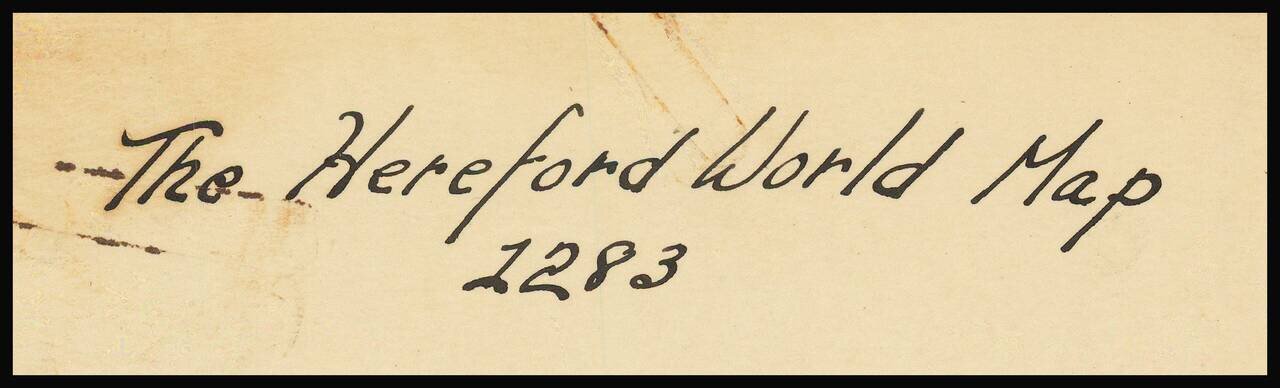 The Hereford World Map
1283